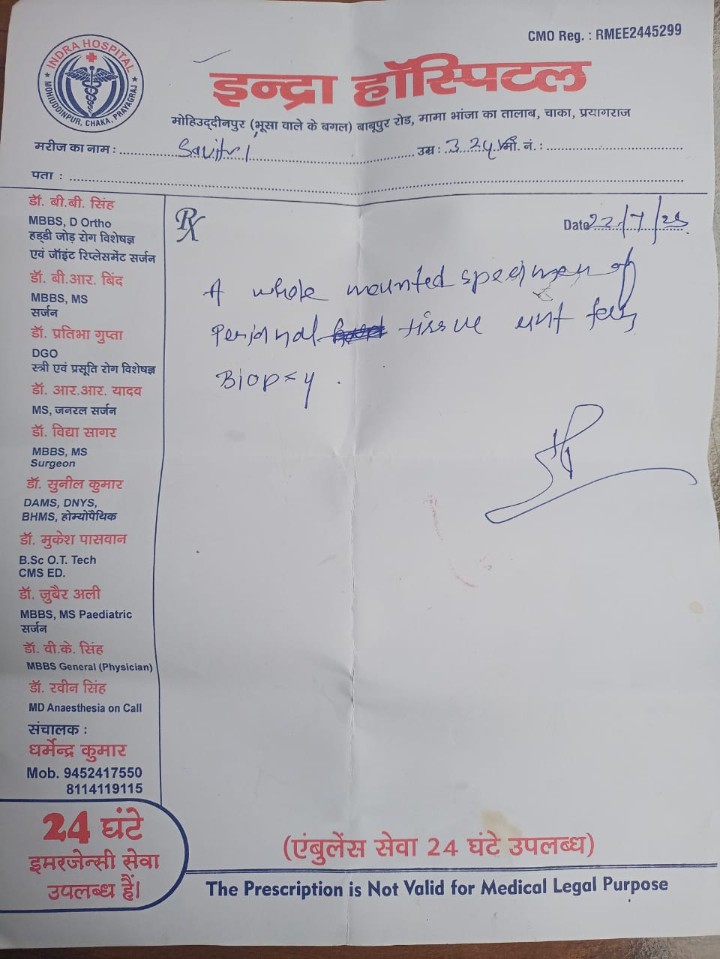 CMO Reg. : RMEE2445299
INDRA HOSPITAL
MOHIUDDINPUR, CHAKA, PRAYAGRAJ
इन्द्रा हॉस्पिटल
मोहिउद्दीनपुर (भूसा वाले के बगल) बाबूपुर रोड, मामा भांजा का तालाब, चाका, प्रयागराज
मरीज का नाम : Savitri उम्र : 32y मो. नं. :
पता :
Rx
Date 22/7/25
A whole mounted specimen of
tissue
Biopsy .
डॉ. बी.बी. सिंह
MBBS, D Ortho
हड्डी जोड़ रोग विशेषज्ञ
एवं जॉइंट रिप्लेसमेंट सर्जन
डॉ. बी.आर. बिंद
MBBS, MS
सर्जन
डॉ. प्रतिभा गुप्ता
DGO
स्त्री एवं प्रसूति रोग विशेषज्ञ
डॉ. आर.आर. यादव
MS, जनरल सर्जन
डॉ. विद्या सागर
MBBS, MS
Surgeon
डॉ. सुनील कुमार
DAMS, DNYS,
BHMS, होम्योपैथिक
डॉ. मुकेश पासवान
B.Sc O.T. Tech
CMS ED.
डॉ. जुबैर अली
MBBS, MS Paediatric
सर्जन
डॉ. वी.के. सिंह
MBBS General (Physician)
डॉ. रवीन सिंह
MD Anaesthesia on Call
संचालक :
धर्मेन्द्र कुमार
Mob. 9452417550
8114119115
24 घंटे
इमरजेन्सी सेवा
उपलब्ध हैं।
(एंबुलेंस सेवा 24 घंटे उपलब्ध)
The Prescription is Not Valid for Medical Legal Purpose